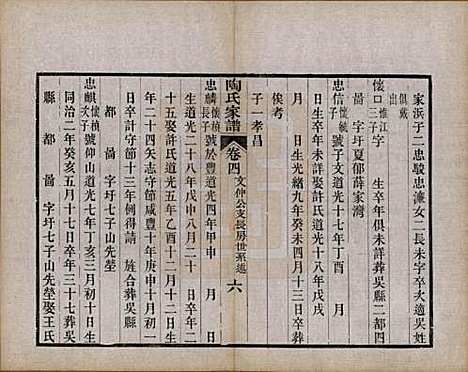 家浜子二忠駿忠濂女二長未字卒次適吳姓
俱戴出
懷口三惟江子字生卒年俱未詳葬吳縣二都四
啚字圩夏郁薛家灣
忠信懷毓子字子文道光十七年丁酉月
日生卒年未詳娶許氏道光十八年戊戌
月日生光緒九年癸未四月十三日卒葬
俟考
子一孝昌
陶氏家譜
卷四
文仲公支長房世系遞
六
忠麟懷楨長子號於豐道光四年甲申月日
生道光二十八年戊申八月二十
十五娶許氏道光五年乙酉十二月
年二十四矢志守節咸豐十年庚申十月初一
日卒計守節十三年例得請旌合葬吳縣
都啚字圩七子山先塋
忠麒懷楨次子號仰山道光七年丁亥三月初十日生
同治二年癸亥五月十七日卒年三十七葬吳
縣都啚字圩七子山先塋娶王氏